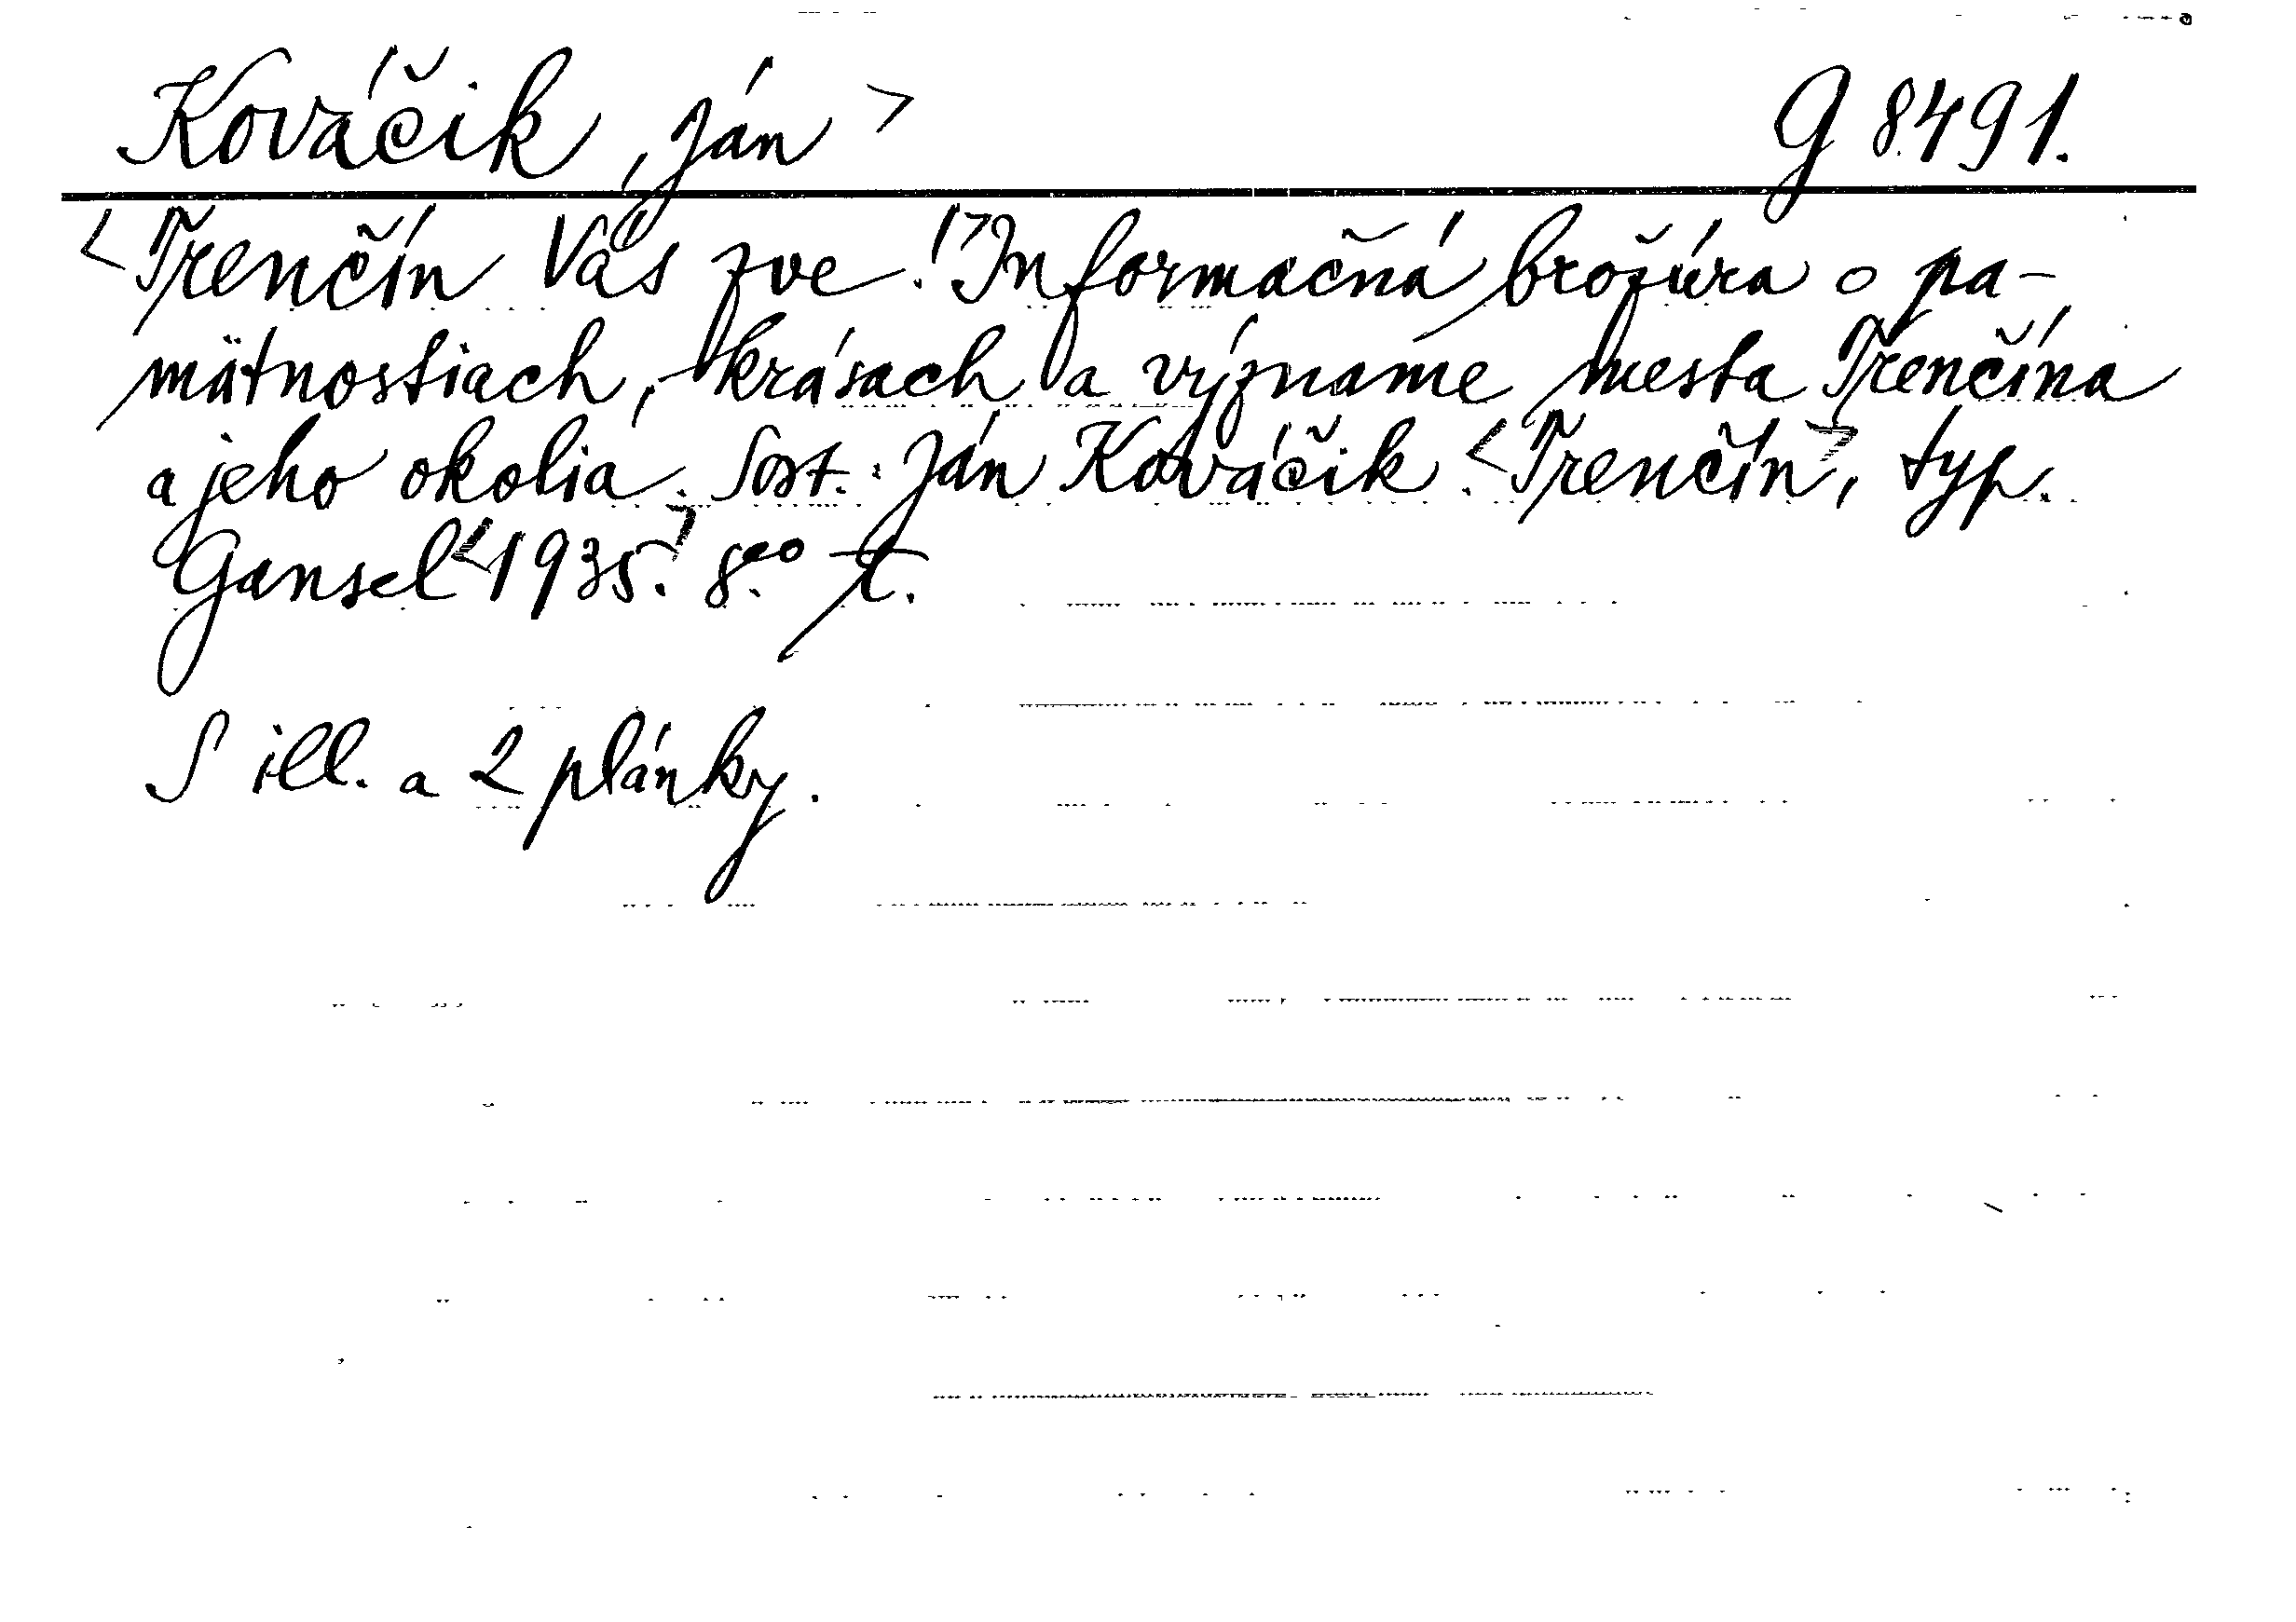 Kováčik, Ján > G 8.491.
<Trenčín Vás zve!> Informačná brožúra o pa-
mätnostiach, krásach a význame mesta Trenčína
a jeho okolia. Sost.: Ján Kováčik. <Trenčín>, typ.
Gansel <1935.> 8.⁰
S ill. a 2 plánky.